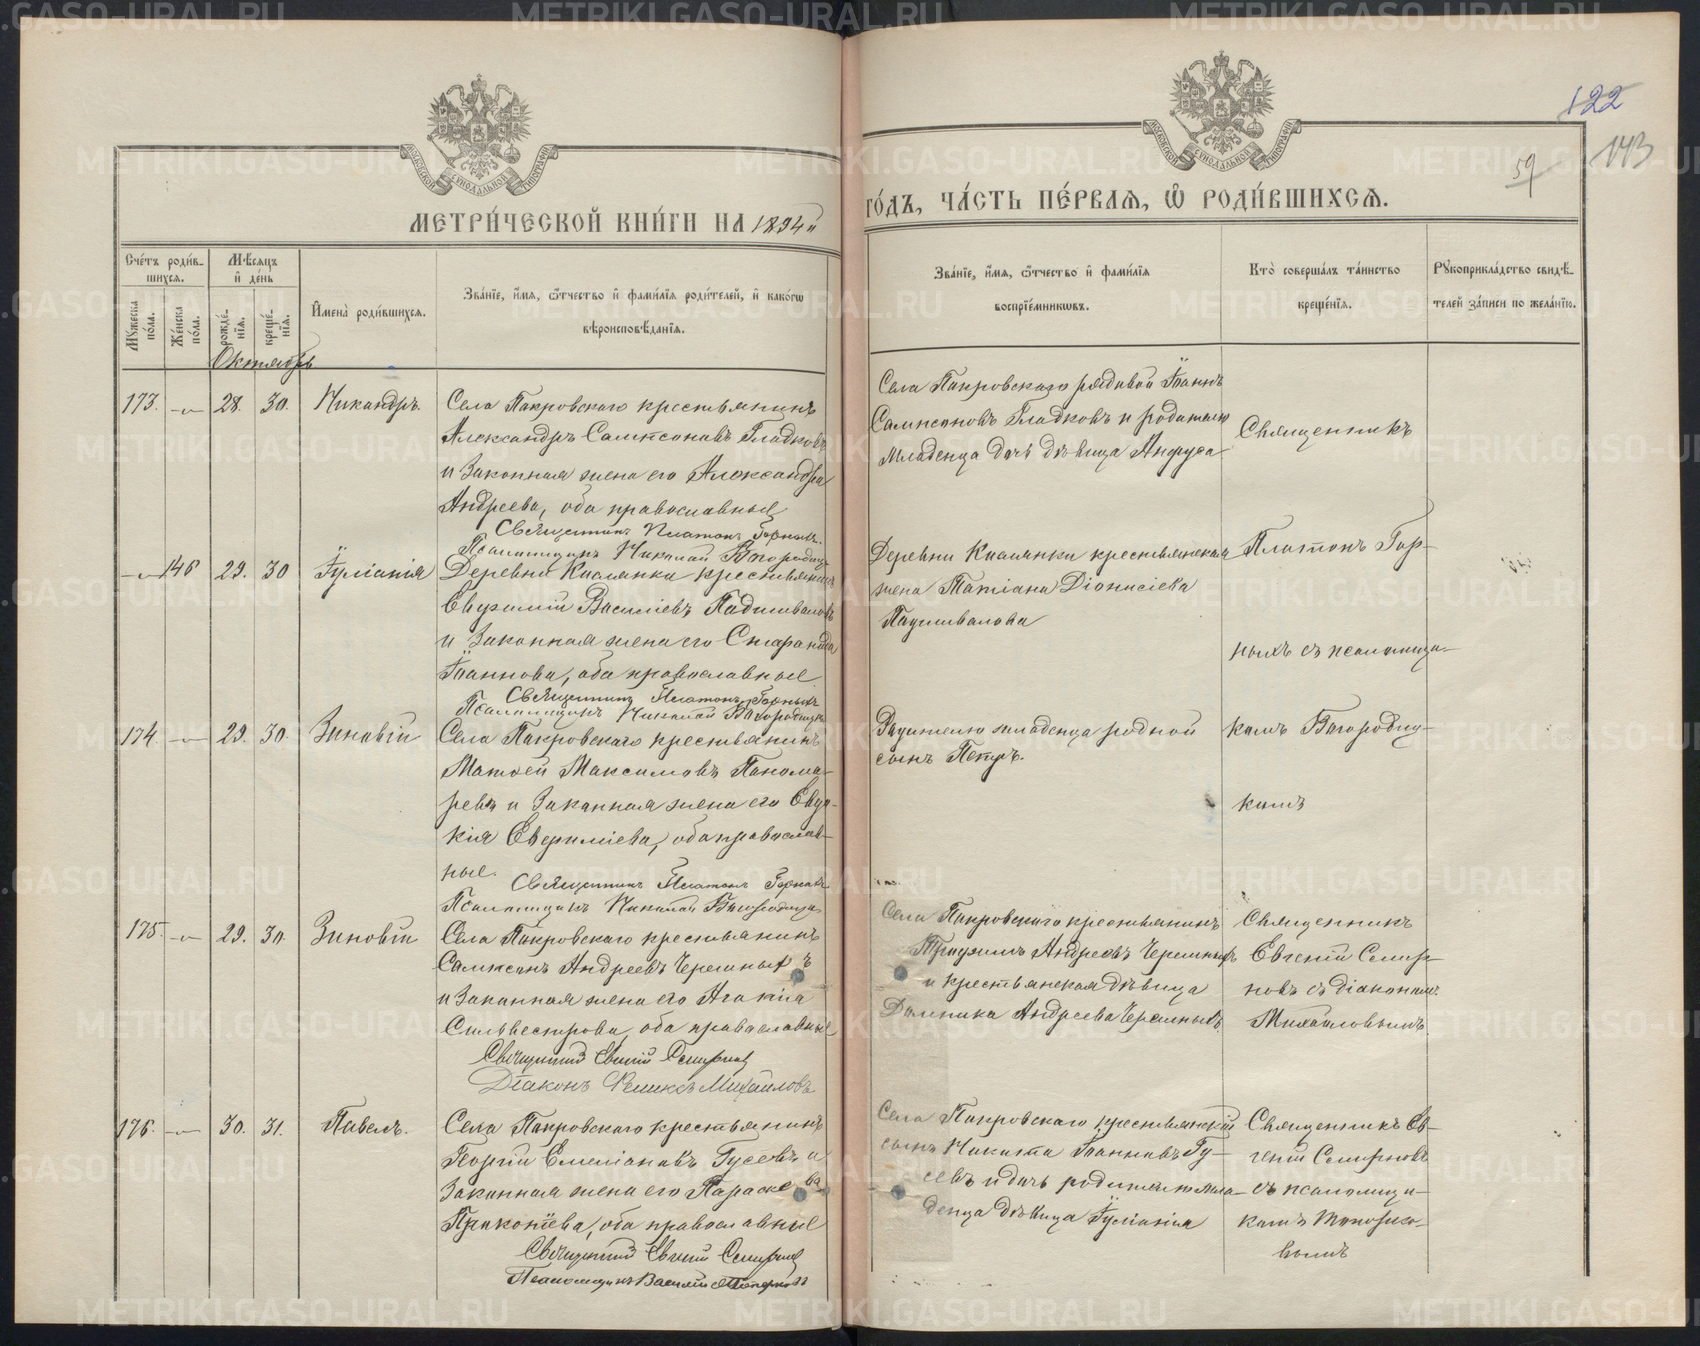 122
143
59
МЕТРИ́ЧЕСКОЙ КНИ́ГИ НА 1894й
ГО́ДЪ, ЧА́СТЬ ПЕ́РВАѦ, Ѡ҆ РОДИ́ВШИХСѦ.
МОСКОВСКОЙ СѴНОДАЛЬНОЙ ТИПОГРАФІИ
МОСКОВСКОЙ СѴНОДАЛЬНОЙ ТИПОГРАФІИ
Сче́тъ роди́вшихсѧ.
Мꙋ́жеска по́ла.
Же́нска по́ла.
Мѣ́сѧцъ и҆ де́нь
рожде́нїѧ.
креще́нїѧ.
И҆мена̀ роди́вшихсѧ.
Зва́нїе, и҆́мѧ, ѻ҆́тчество и҆ фами́лїѧ роди́телей, и҆ како́гѡ
вѣроисповѣ́данїѧ.
Зва́нїе, и҆́мѧ, ѻ҆́тчество и҆ фами́лїѧ
воспрїе́мникѡвъ.
Кто̀ соверша́лъ та́инство
креще́нїѧ.
Рꙋкоприкла́дство свидѣ́-
телей за́писи по жела́нїю.
Октябрь
173. 28. 30. Никандръ.
Села Покровскаго крестьянинъ
Александръ Сампсоновъ Гладковъ
и законная жена его Александра
Андреева, оба православные
Священникъ Платонъ Горныхъ.
Псаломщикъ Николай Богородицк
Села Покровскаго рядовой Іоаннъ
Сампсоновъ Гладковъ и родителю
младенца дочь дѣвица Анфуса
Священникъ
146 29. 30 Іуліанія
Деревни Кислянки крестьянинъ
Евфимій Василіевъ Подшиваловъ
и законная жена его Стефанида
Іоаннова, оба православные
Священникъ Платонъ Горныхъ
Псаломщикъ Николай Богородицк
Деревни Кислянки крестьянская
жена Татіана Діонисіева
Подшивалова
Платонъ Гор-
ныхъ съ псаломщи-
174. 29. 30. Зиновій
Села Покровскаго крестьянинъ
Матѳей Максимовъ Понома-
ревъ и законная жена его Евдо-
кія Евфиміева, оба православ-
ные.
Священникъ Платонъ Горныхъ
Псаломщикъ Николай Богородицк
Родителю младенца родной
сынъ Петръ.
комъ Богородиц-
кимъ
175. 29. 30. Зиновій
Села Покровскаго крестьянинъ
Сампсонъ Андреевъ Черемныхъ
и законная жена его Агапія
Сильвестрова, оба православные
Священникъ Евгеній Смирновъ
Діаконъ Феликсъ Михайловъ
Села Покровскаго крестьянинъ
Трофимъ Андреевъ Черемныхъ
и крестьянская дѣвица
Домника Андреева Черемныхъ
Священникъ
Евгеній Смир-
новъ съ діакономъ
Михайловымъ
176. 30. 31. Павелъ.
Села Покровскаго крестьянинъ
Георгій Емеліановъ Гусевъ и
законная жена его Параскева
Прокопіева, оба православные
Священникъ Евгеній Смирновъ
Псаломщикъ Василій
Села Покровскаго крестьянскій
сынъ Никита Іоанновъ Гу-
севъ и дочь родителю мла-
денца дѣвица Іуліанія
Священникъ Ев-
геній Смирновъ
съ псаломщи-
комъ
METRIKI.GASO-URAL.RU